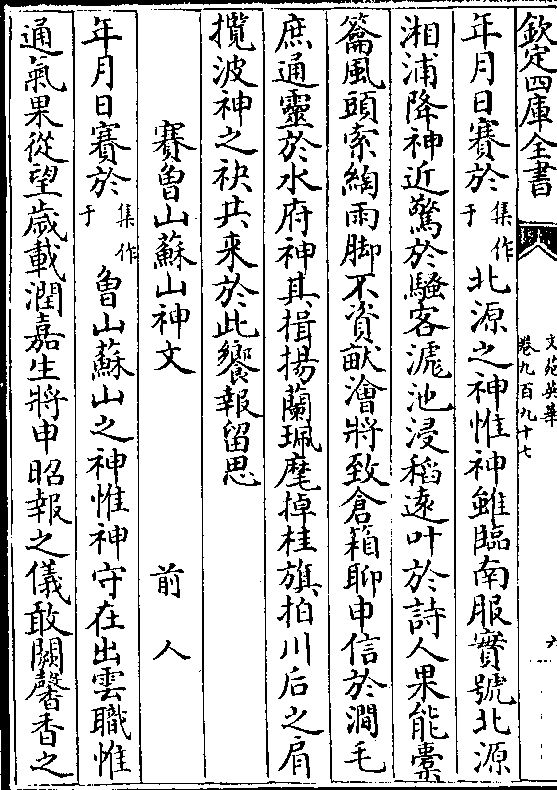 欽定四庫全書
文苑英華
卷九百九十七
六
年月日賽於集作于北源之神惟神雖臨南服實號北源
湘浦降神近驚於騷客滮池浸稻遠叶於詩人果能橐
籥風頭索綯雨脚不資畎澮將致倉箱聊申信於澗毛
庶通靈於水府神其揖揚蘭珮麾掉桂旗拍川后之肩
攬波神之袂共來於此饗報留思
賽魯山蘇山神文 前人
年月日賽於集作于魯山蘇山之神惟神守在出雲職惟
通氣果從望歲載潤嘉生將申昭報之儀敢闕馨香之